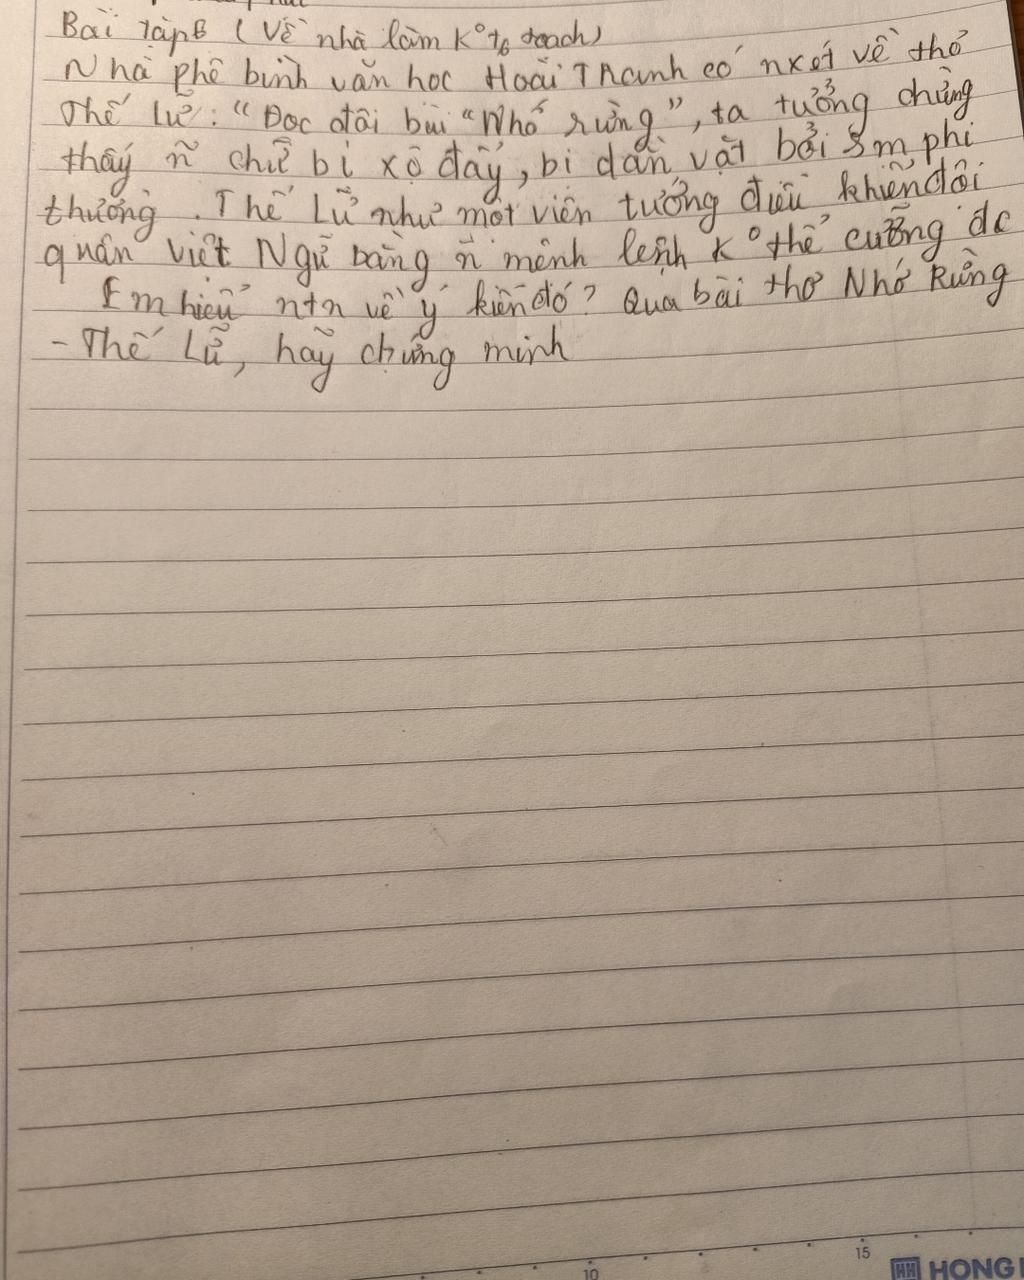 Bài tập B (Về nhà làm Kº to toạch)
Nhà phê bình văn học Hoài Thanh có nxét về thơ
Thế Lữ: “Đọc đôi bài “Nhớ rừng”, ta tưởng chừng
thấy ñ chữ bị xô đẩy, bị dằn vặt bởi sm phi
thường. Thế Lữ như một viên tướng điều khiển đội
quân Việt Ngữ bằng ñ mệnh lệnh Kº thể cưỡng đc
Em hiểu ntn về ý kiến đó? Qua bài thơ Nhớ Rừng
- Thế Lữ, hãy chứng minh
10
15
HH HONG